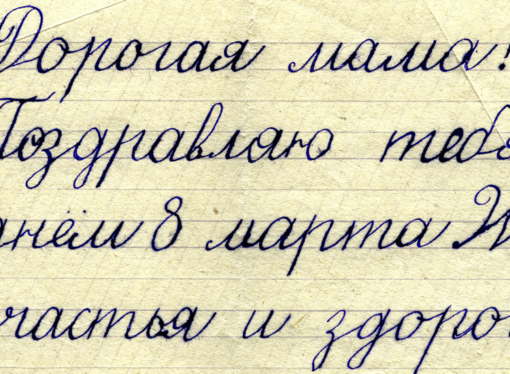 Дорогая мама!
Поздравляю тебя
днём 8 марта Ж
частья и здоро